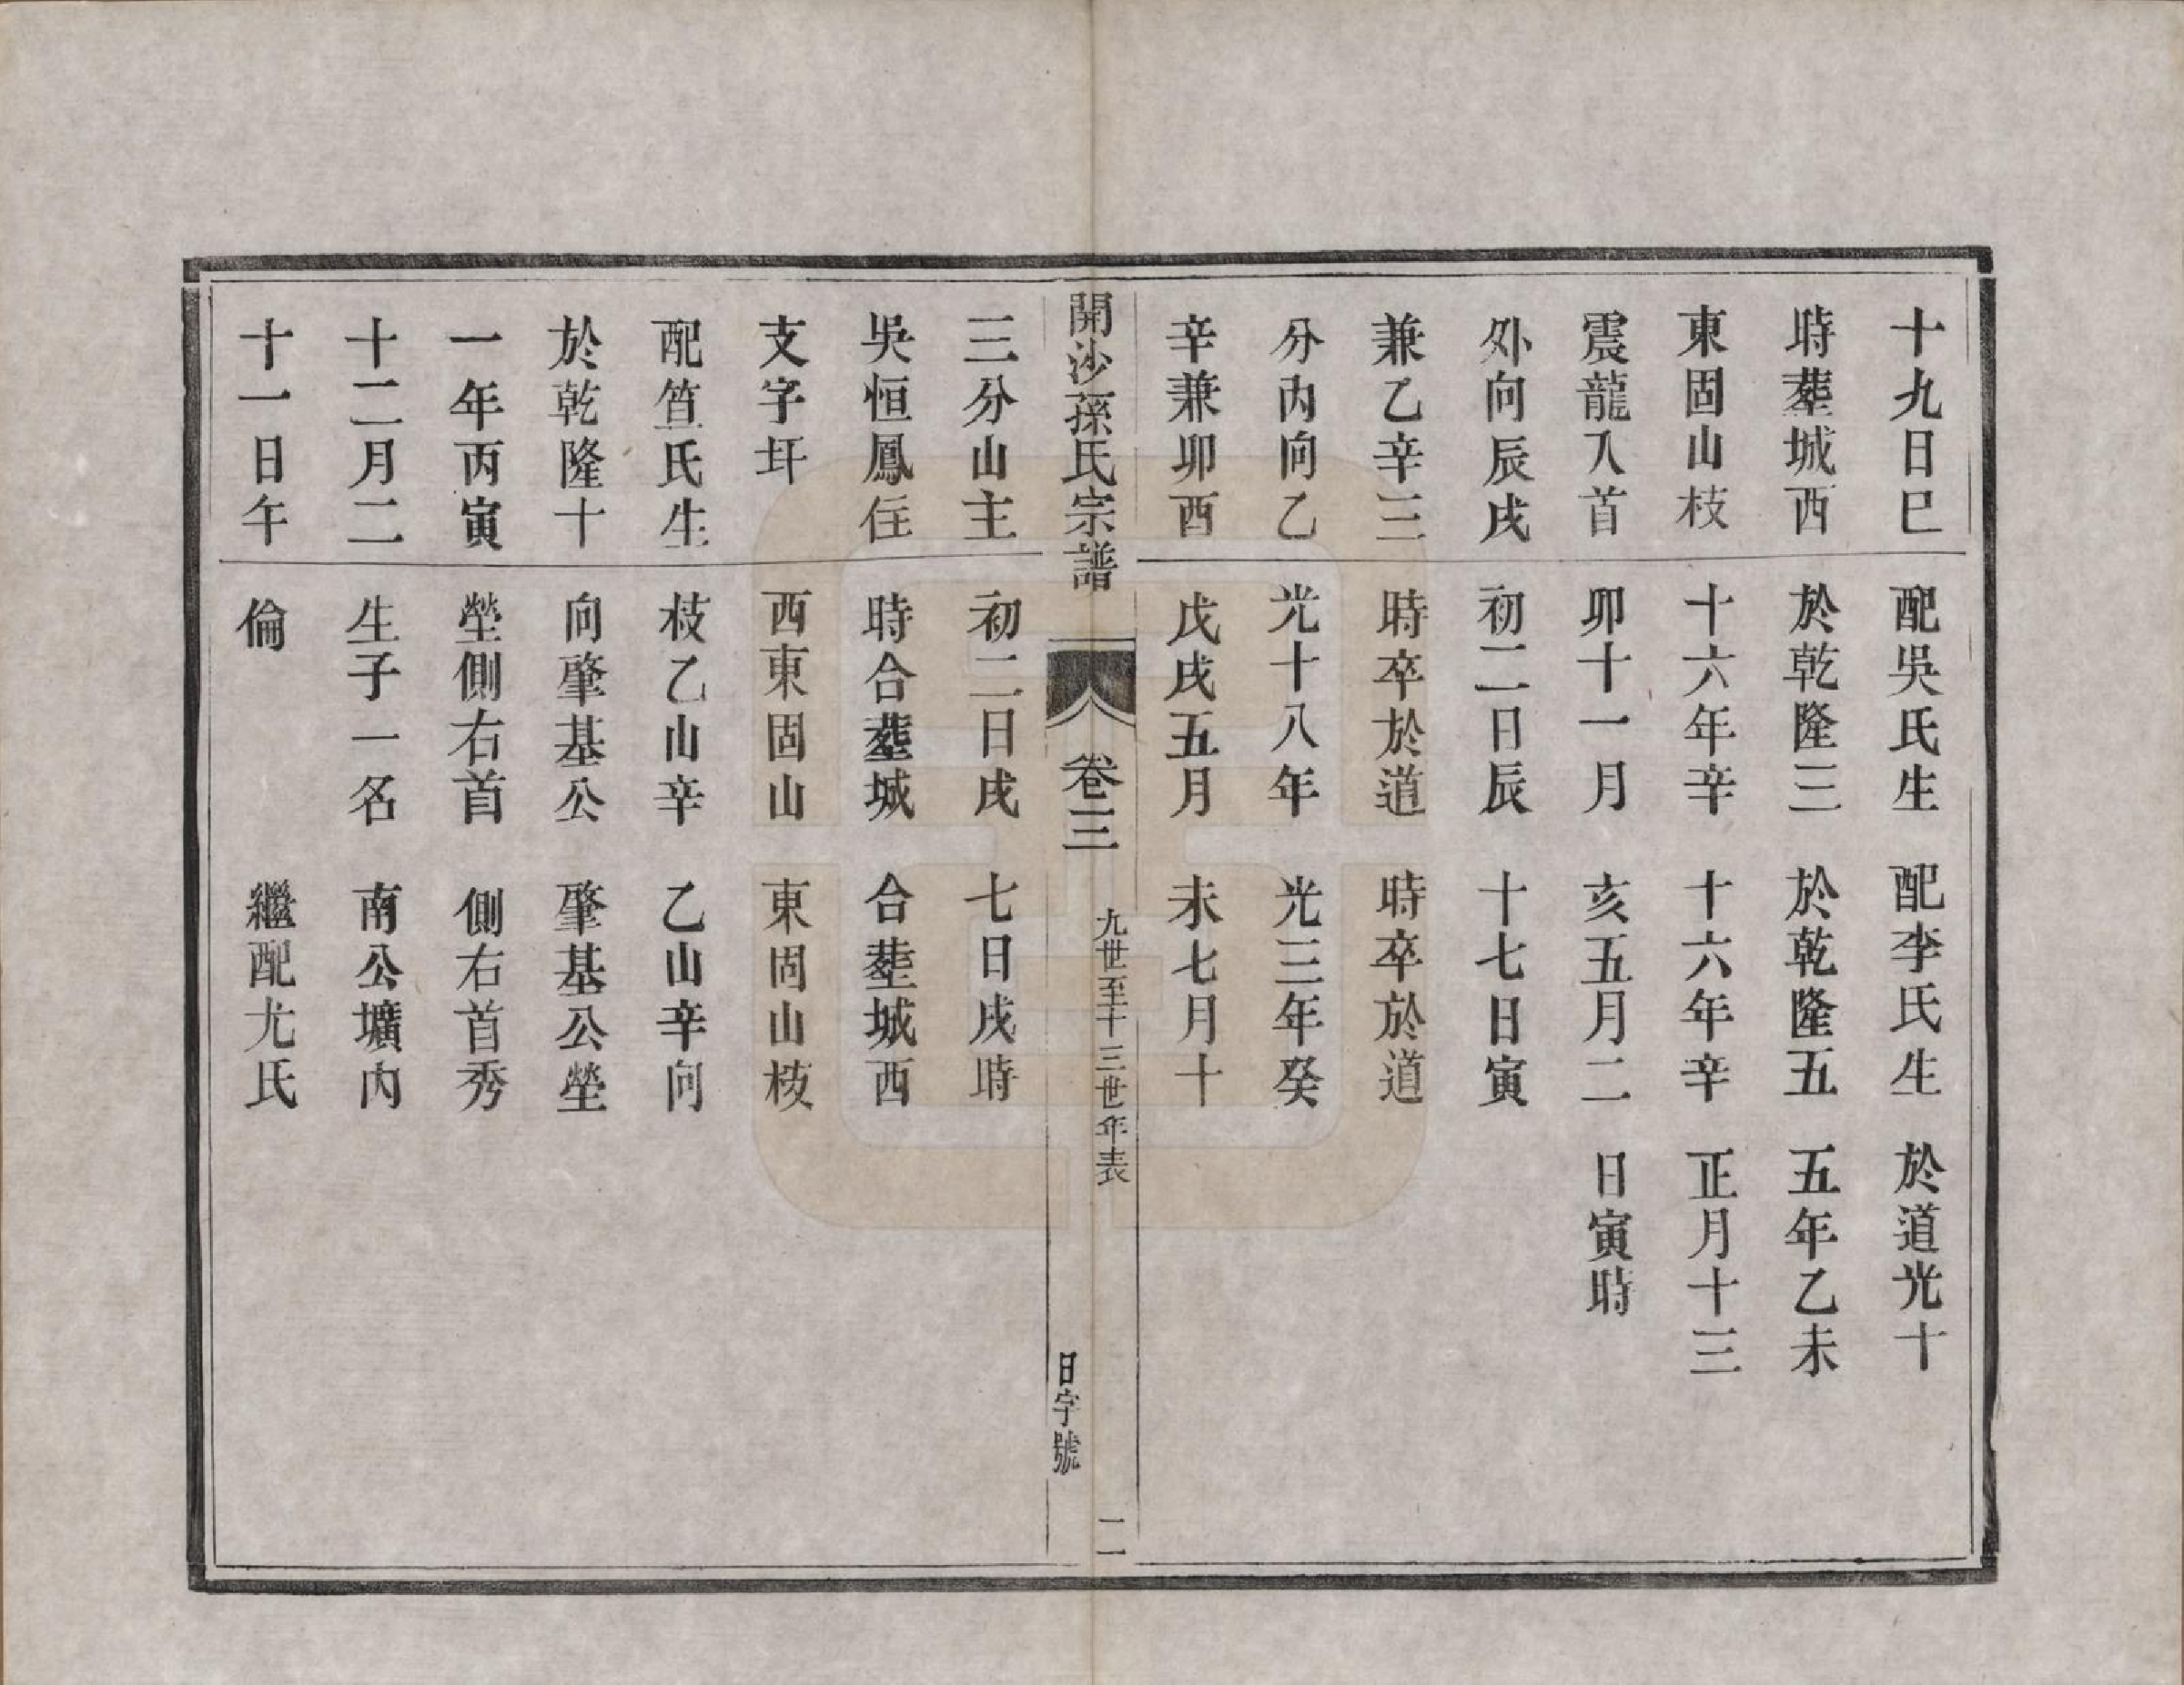 十九日巳
時葬城西
東固山枝
震龍入首
外向辰戌
兼乙辛三
分內向乙
辛兼卯酉
配吳氏生
於乾隆三
十六年辛
卯十一月
初二日辰
時卒於道
光十八年
戊戌五月
配李氏生
於乾隆五
十六年辛
亥五月二
十七日寅
時卒於道
光三年癸
未七月十
於道光十
五年乙未
正月十三
日寅時
開沙孫氏宗譜
卷三
九世至十三世年表
日字號
二
三分山主
吳恒鳳住
支字圩
配笪氏生
於乾隆十
一年丙寅
十二月二
十一日午
初二日戌
時合葬城
西東固山
枝乙山辛
向肇基公
塋側右首
生子一名
倫
七日戌時
合葬城西
東固山枝
乙山辛向
肇基公塋
側右首秀
南公壙內
繼配尤氏